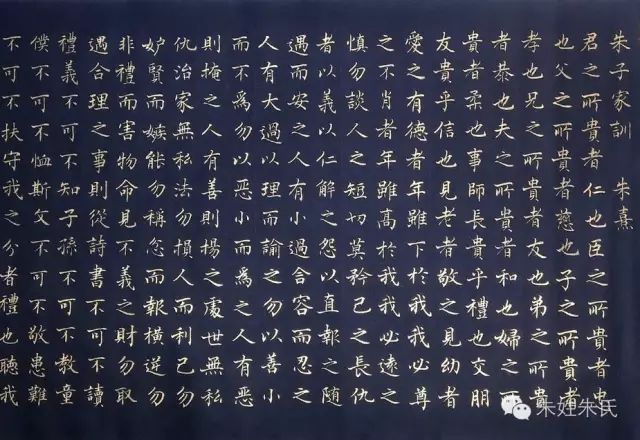 朱子家訓 朱熹
君之所貴者仁也臣之所貴者忠
也父之所貴者慈也子之所貴者
孝也兄之所貴者友也弟之所貴
者恭也夫之所貴者和也婦之所
貴者柔也事師長貴乎禮也交朋
友貴乎信也見老者敬之見幼者
愛之有德者年雖下於我我必尊
之不肖者年雖高於我我必遠之
慎勿談人之短切莫矜己之長仇
者以義以仁解之怨以直報之隨
遇而安之人有小過含容而忍之
人有大過以理而諭之勿以善小
而不爲勿以惡小而爲之人有惡
則掩之人有善則揚之處世無私
仇治家無私法勿損人而利己勿
妒賢而嫉能勿稱忿而報橫逆勿
非禮而害物命見不義之財勿取
遇合理之事則從詩書不可不讀
禮義不可不知子孫不可不教童
僕不可不恤斯文不可不敬患難
不可不扶守我之分者禮也聽我
朱姓朱氏